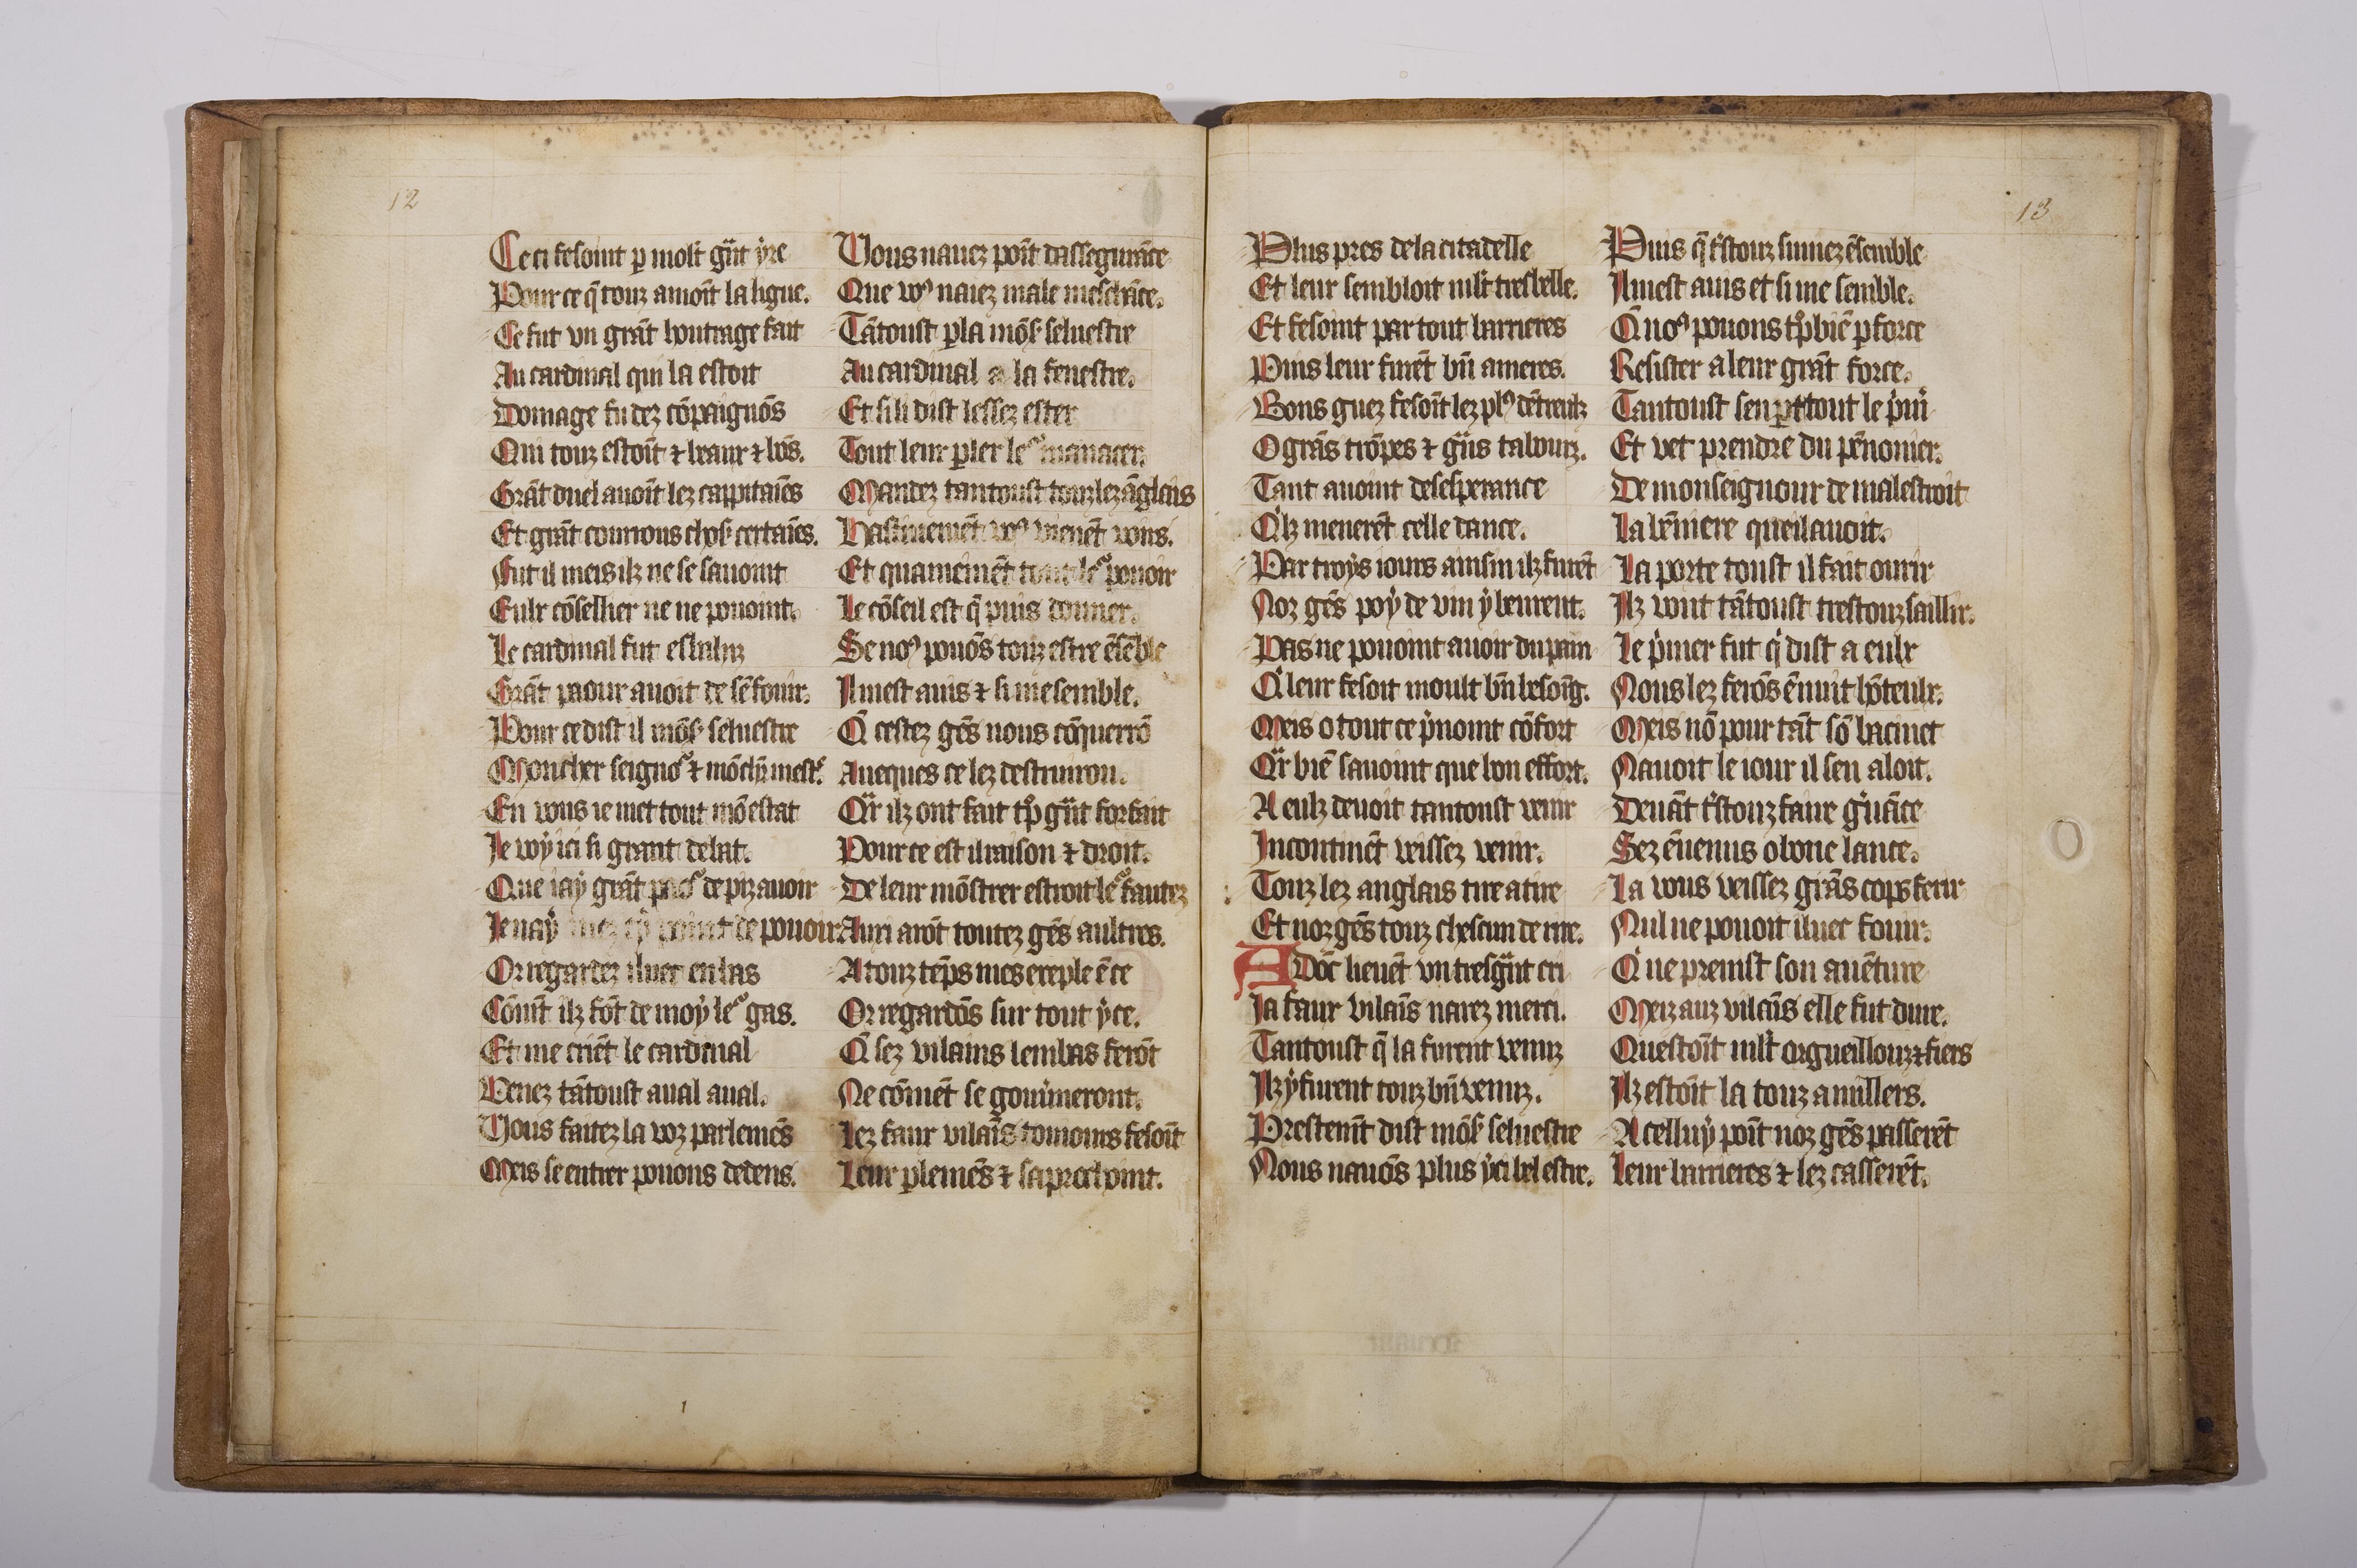 12
Ce ci fesoint p̱ molt gñt yre
Pour ce q̄ touz auoīt la ligue.
Ce fut vn grāt houtrage fait
Au cardinal qui la estoit
Domage fu dez cōpaignōs
Qui touz estoīt ⁊ beaux ⁊ bōs.
Grāt duel auoīt lez cappitaiēs
Et grāt courrous chos̄ certaiēs.
Fut il meis ilz ne se sauoint
Eulx cōsellier ne ne pouoint.
Le cardinal fut esbahiz
Grāt paour auoit de sē fouir.
Pour ce dist il mōs̄ seluestre
Mon cher seigno᷑ ⁊ mō ch̄r mest̄
En vous ie met tout mō estat
Je voy ici si grant debat.
Que iay grāt pao᷑ de piz auoir
Je nay point de pouoir
Or regardez iluec en bas
Cōmīt ilz fōt de moy le᷑ gas.
Et me criēt le cardinal
Venez tātoust aual aual.
Vous faitez la voz parlemēs
Meis se entrer pouons dedens.
Vous nauez poīt dassegurāce
Que vo⁹ naiez male meschāce.
Tātoust p̱la mōs̄ seluestre
Au cardinal a la fenestre.
Et si li dist lessez ester
Tout leur p̱ler le᷑ manacer.
Mandez tantoust touz lez āglais
Hastiuemēt vo⁹ vienēt vous.
Et quamēmēt tout le᷑ pouoir
Le cōseil est q̄ puis donner.
Se no⁹ pouōs touz estre ēsēble
Il mest auis ⁊ si me semble.
Q̄ cestez gēs nous cōquerrō
Auecques ce lez destruiron.
Qͬr ilz ont fait tͦp gñt forfait
Pour ce est il raison ⁊ droit.
De leur mōstrer estroit le᷑ fautez
Auxi arōt toutez gēs aultres.
A touz tēps mes exeple ē ce
Or regardōs sur tout yce.
Q̄ sez vilains lembas ferōt
Ne cōmēt se gouūneront.
Lez faux vilaīs tomoins fesoīt
Leur p̱lemēs ⁊ saprochoint.
13
Plus pres de la citadelle
Et leur sembloit mlt̄ tresbelle.
Et fesoint par tout barrieres
Puis leur furēt bn̄ ameres.
Bons guez fesoīt lez pl⁹ dētreulx
O grās trōpes ⁊ gñs tabours.
Tant auoint desesperance
Qͥlz menerēt celle dance.
Par troys iours ainsin ilz furēt
Noz gēs poy de vin y beurent.
Pas ne pouoint auoir du pain
Qͥ leur fesoit moult bn̄ besoīg.
Meis o tout ce pͥnoint cōfort
Qͬr biē sauoint que bon effort.
A eulz deuoit tantoust venir
Incontinēt veissez venir.
Touz lez anglais tire a tire
Et noz gēs touz chescun de rire.
ADōc lieuēt vn tresgͣnt cri
Ja faux vilaīs narez merci.
Tantoust q̄ la furent venuz
Ilz y furent touz bn̄ venuz.
Prestenīt dist mōs̄ seluestre
Nous nauōs plus yci bel estre.
Puis q̄ tͬstouz summez ēsemble
Il mest auis et si me semble.
Q̄ no⁹ pouons tͦp biē p̱ force
Resister a leur grāt force.
Tantoust sen p̱t tout le pͥmͥ
Et vet prendre du pēnonier.
De monseignour de malestroit
La bēniere queil auoit.
La porte toust il fait ourir
Ilz vont tātoust trestouz saillir.
Le pͥmer fut qͥ dist a eulx
Nous lez ferōs ēnuit hōteulx.
Meis nō pour tāt sō bacinet
Nauoit le iour il sen aloit.
Deuāt tͬstouz faire gͥuāce
Sez ēnemis o bone lance.
La vous veissez grās cops ferir
Nul ne pouoit iluec fouir.
Qͥ ne preinst son auēture
Meiz auz vilaīs elle fut dure.
Questoīt mlt̄ orgueillouz ⁊ fiers
Ilz estoīt la touz a milliers.
A celluy poīt noz gēs passerēt
Leur barrieres ⁊ lez casserēt.